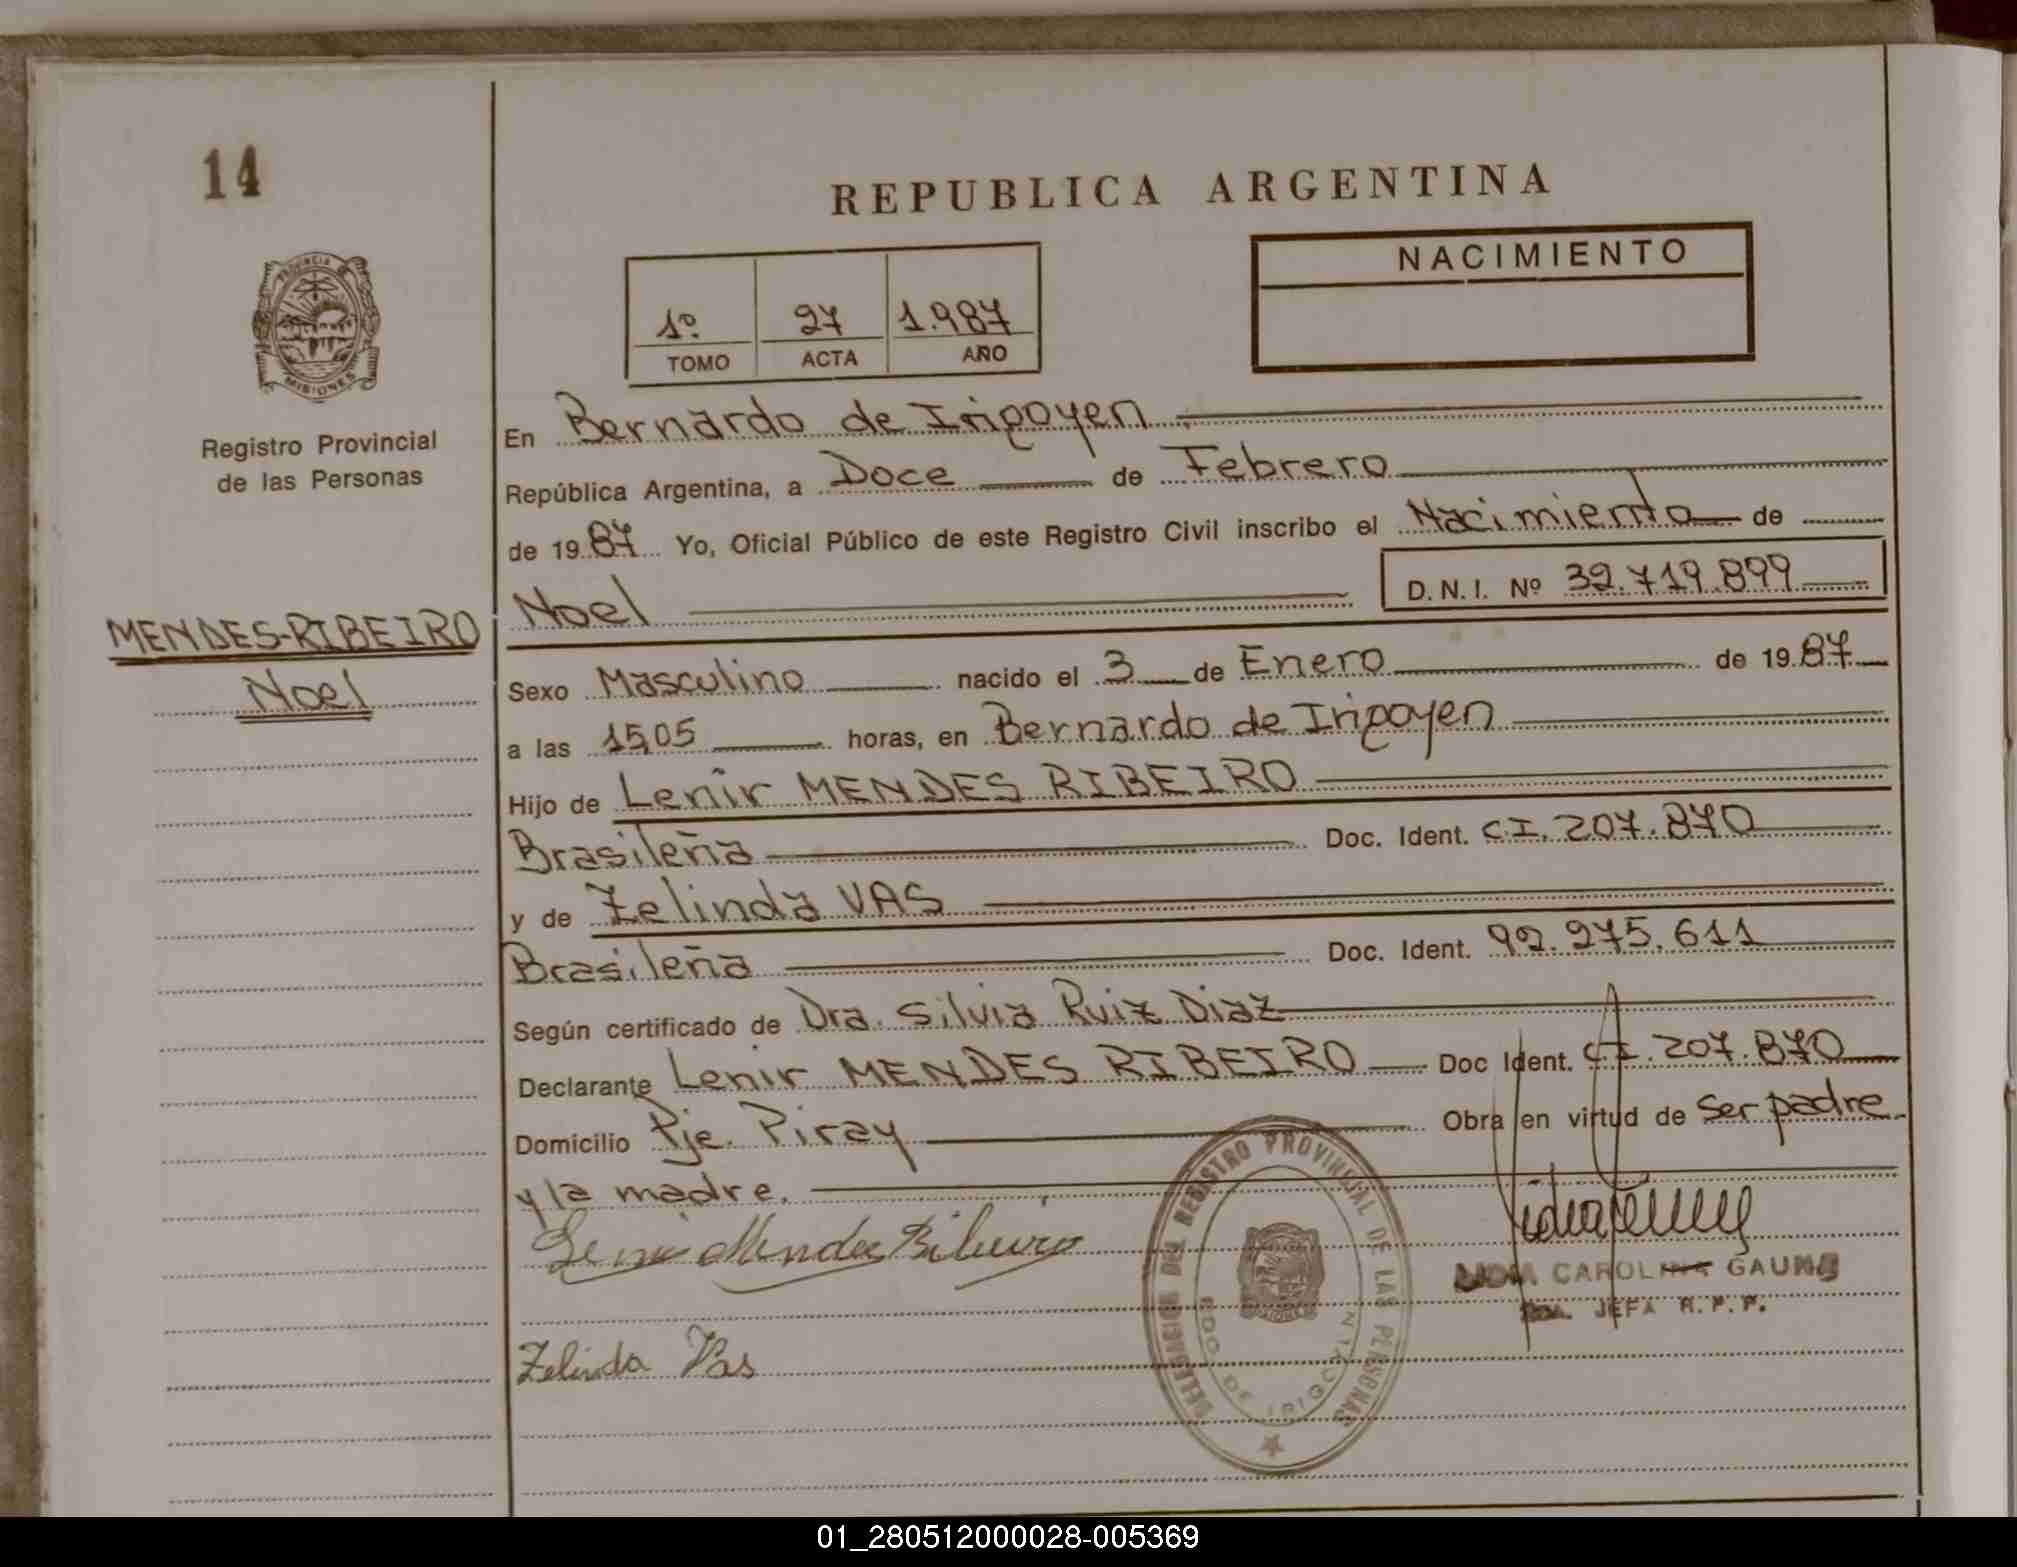 14
REPUBLICA ARGENTINA
NACIMIENTO
1º 27 1.987
TOMO ACTA AÑO
PROVINCIA DE
MISIONES
Registro Provincial
de las Personas
MENDES-RIBEIRO
Noel
En Bernardo de Irigoyen
República Argentina, a Doce de Febrero
de 1987 Yo, Oficial Público de este Registro Civil inscribo el Nacimiento de
Noel D. N. I. Nº 32.719.899
Sexo Masculino nacido el 3 de Enero de 1987
a las 15,05 horas, en Bernardo de Irigoyen
Hijo de Lenir MENDES RIBEIRO
Brasileña Doc. Ident. C.I. 207.870
y de Zelinda VAS
Brasileña Doc. Ident. 92.275.611
Según certificado de Dra. Silvia Ruiz Diaz
Declarante Lenir MENDES RIBEIRO Doc Ident. C.I. 207.870
Domicilio Pje. Piray Obra en virtud de Ser padre
y la madre.
Leni Mendes Ribeiro
DELEGACION DEL REGISTRO PROVINCIAL DE LAS PERSONAS
BDO DE IRIGOYEN
CAROLINA GAUNA
JEFA R. P. P.
Zelinda Vas
01_280512000028-005369